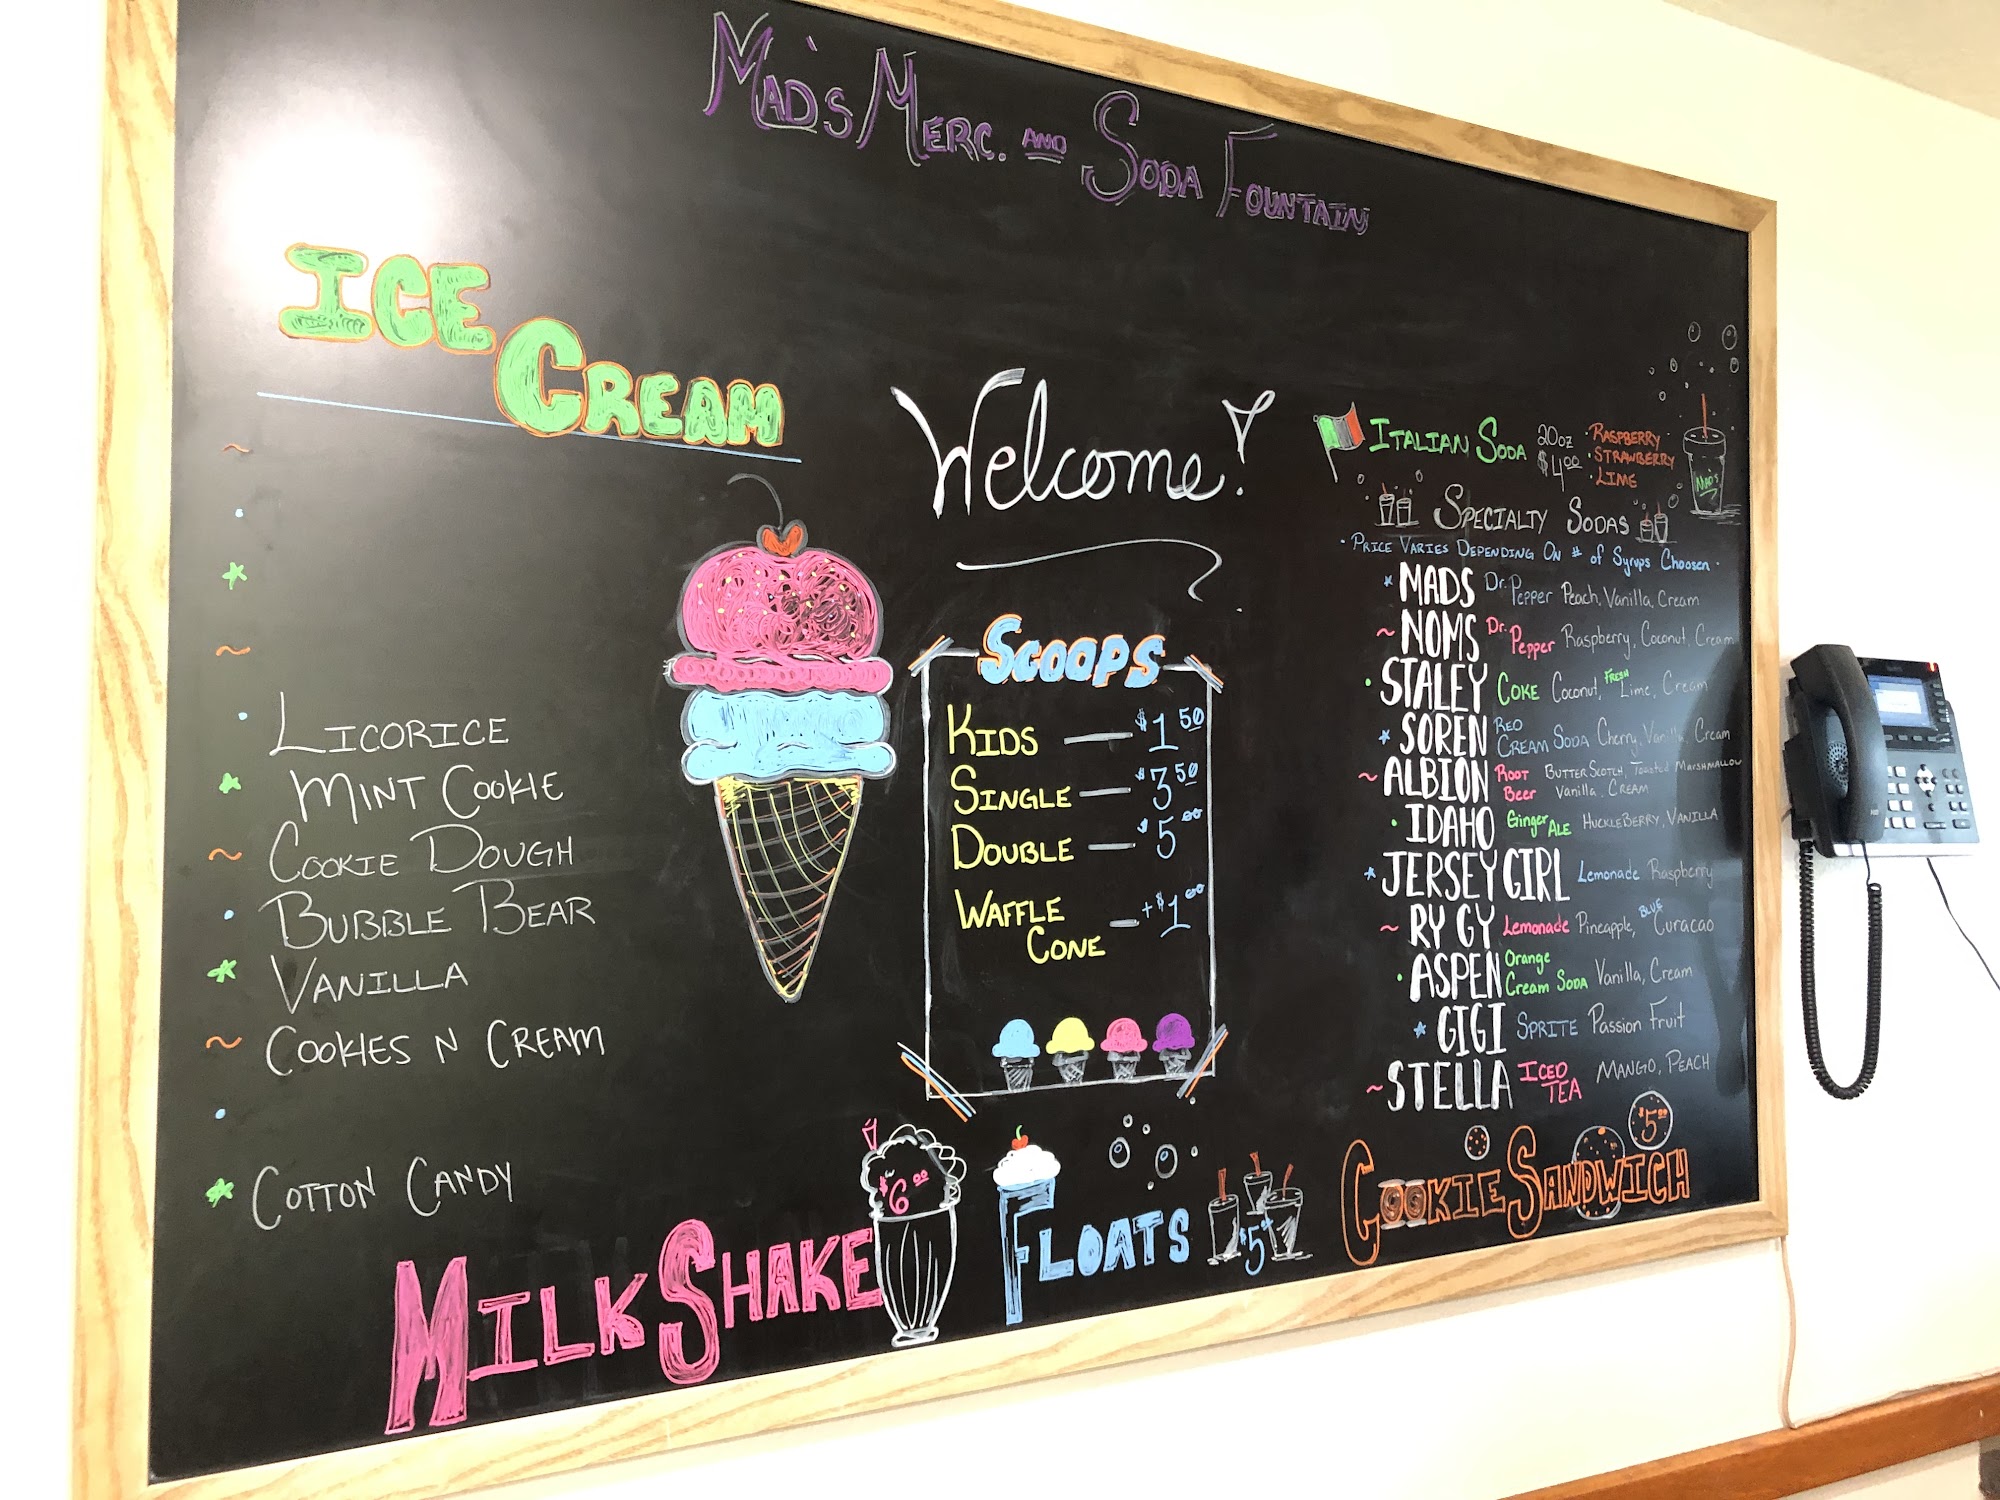 MAD'S MERC. AND SODA FOUNTAIN
ICE CREAM
LICORICE
MINT COOKIE
COOKIE DOUGH
BUBBLE BEAR
VANILLA
COOKIES N CREAM
COTTON CANDY
Welcome!
SCOOPS
KIDS — $1 50
SINGLE — $3 50
DOUBLE — $5 00
WAFFLE CONE — +$1 00
MILKSHAKE $6 00
FLOATS $5
ITALIAN SODA 20oz $4 00
• RASPBERRY
• STRAWBERRY
• LIME
MAD'S
SPECIALTY SODAS
• PRICE VARIES DEPENDING ON # of Syrups Choosen •
MADS Dr. Pepper Peach, Vanilla, Cream
~ NOMS Dr. Pepper Raspberry, Coconut, Cream
• STALEY COKE Coconut, FRESH Lime, Cream
SOREN RED CREAM SODA Cherry, Vanilla, Cream
~ ALBION Root Beer BUTTERSCOTCH, Toasted MARSHMALLOW Vanilla, CREAM
• IDAHO Ginger ALE HUCKLEBERRY, VANILLA
JERSEY GIRL Lemonade Raspberry
~ RY GY Lemonade Pineapple, BLUE Curacao
• ASPEN Orange Cream SODA Vanilla, Cream
GIGI SPRITE Passion Fruit
~ STELLA ICED TEA MANGO, PEACH
COOKIE SANDWICH $5 00